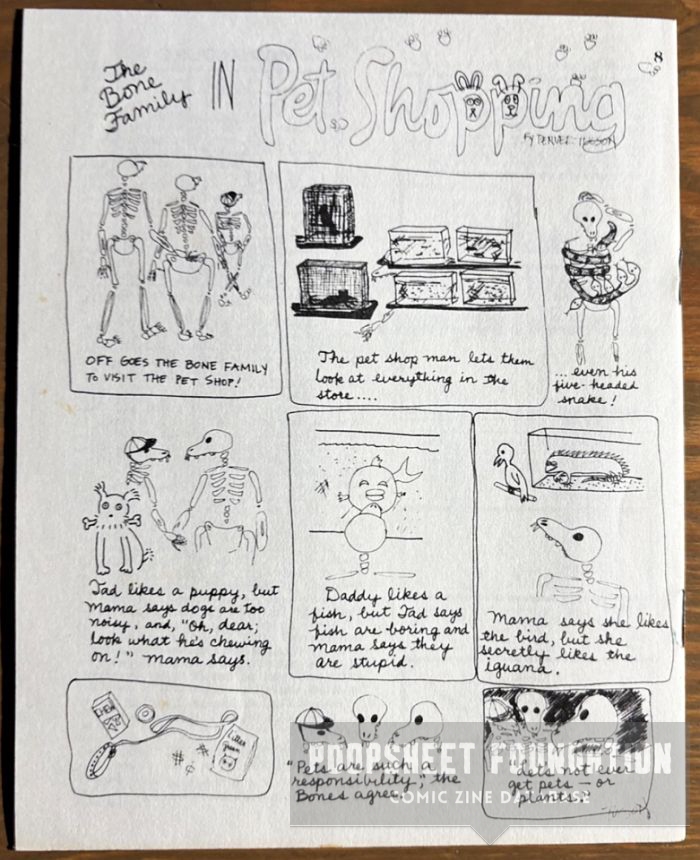 8
The
Bone
Family
IN
Pet Shopping
By
OFF GOES THE BONE FAMILY
TO VISIT THE PET SHOP!
The pet shop man lets them
look at everything in the
store....
...even his
five-headed
snake!
Tad likes a puppy, but
Mama says dogs are too
noisy, and, "Oh, dear;
look what he's chewing
on!" Mama says.
Daddy likes a
fish, but Tad says
fish are boring and
Mama says they
are stupid.
Mama says she likes
the bird, but she
secretly likes the
iguana.
CHEW
"Pets are such a
responsibility," the
Bones agree.
"Lets not ever
get pets — or
plants."
POOPSHEET FOUNDATION
COMIC ZINE DATABASE